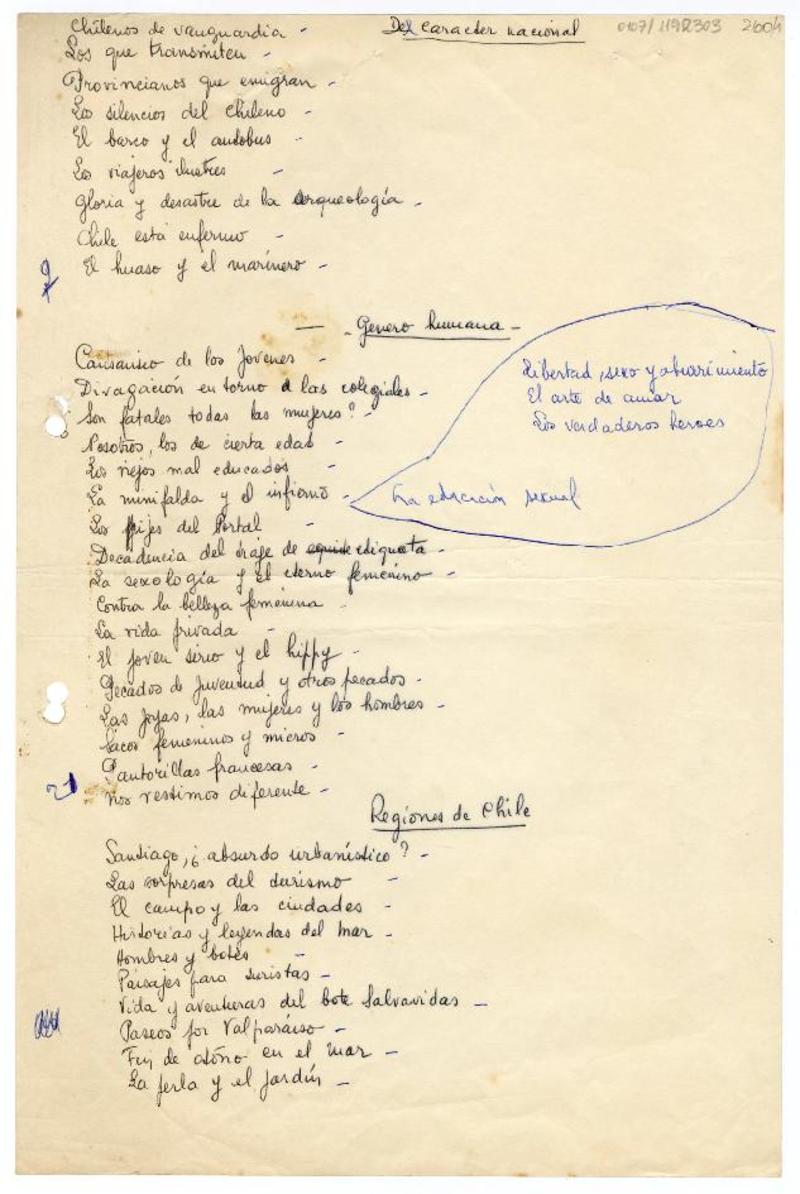 Del caracter nacional
0107/1192303 2604
Chilenos de vanguardia -
Los que transmiten -
Provincianos que emigran -
Los silencios del chileno -
El barco y el autobus -
Los viajeros ilustres -
Gloria y desastre de la arqueología -
Chile está enfermo -
El huaso y el marinero -
9
— - Genero humano -
Cansancio de los Jovenes -
Divagación en torno a las colegiales -
Son fatales todas las mujeres? -
Nosotros, los de cierta edad -
Los viejos mal educados -
La minifalda y el infierno -
Libertad, sexo y aburrimiento
El arte de amar
Los verdaderos heroes
La educación sexual
Los pijes del Portal -
Decadencia del traje de etiqueta -
La sexología y el eterno femenino -
Contra la belleza femenina -
La vida privada -
El joven serio y el hippy -
Pecados de juventud y otros pecados -
Las joyas, las mujeres y los hombres -
Sacos femeninos y micros -
Pantorillas francesas -
Nos vestimos diferente -
21
Regiones de Chile
Santiago, ¿absurdo urbanístico? -
Las sorpresas del turismo -
El campo y las ciudades -
Historias y leyendas del mar -
Hombres y botes -
Paisajes para turistas -
Vida y aventuras del bote Salvavidas -
Paseos por Valparaíso -
Fin de otoño en el mar -
La perla y el jardín -